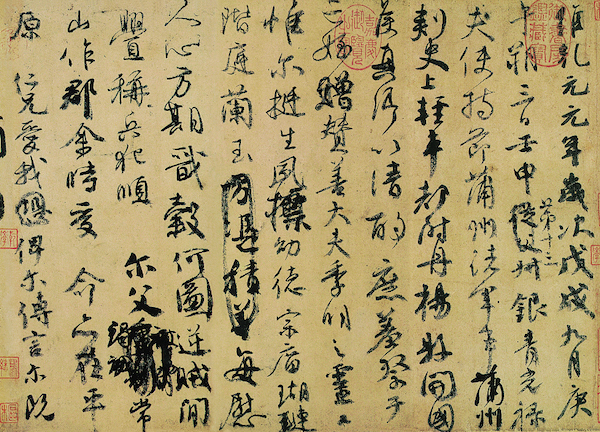 維乾元元年歲次戊戌九月庚
午朔三日壬申第十三從父叔銀青光祿
夫使持節蒲州諸軍事蒲州
刺史上輕車都尉丹楊縣開國
侯真卿以清酌庶羞祭于
亡姪贈贊善大夫季明之靈曰
惟爾挺生夙標幼德宗廟瑚璉
階庭蘭玉方憑積善每慰
人心方期戩穀何圖逆賊間
釁稱兵犯順爾父竭誠常
山作郡余時受命亦在平
原仁兄愛我恐俾爾傳言爾既
嘉慶御覽之寶